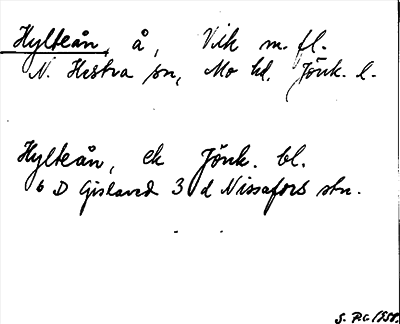 Hylteån, å, Vik m. fl.
N. Hestra sn, Mo hd, Jönk. l.
Hylteån, ek Jönk. bl.
6 D Gislaved 3 d Nissafors stn.
S. P.G 1958.